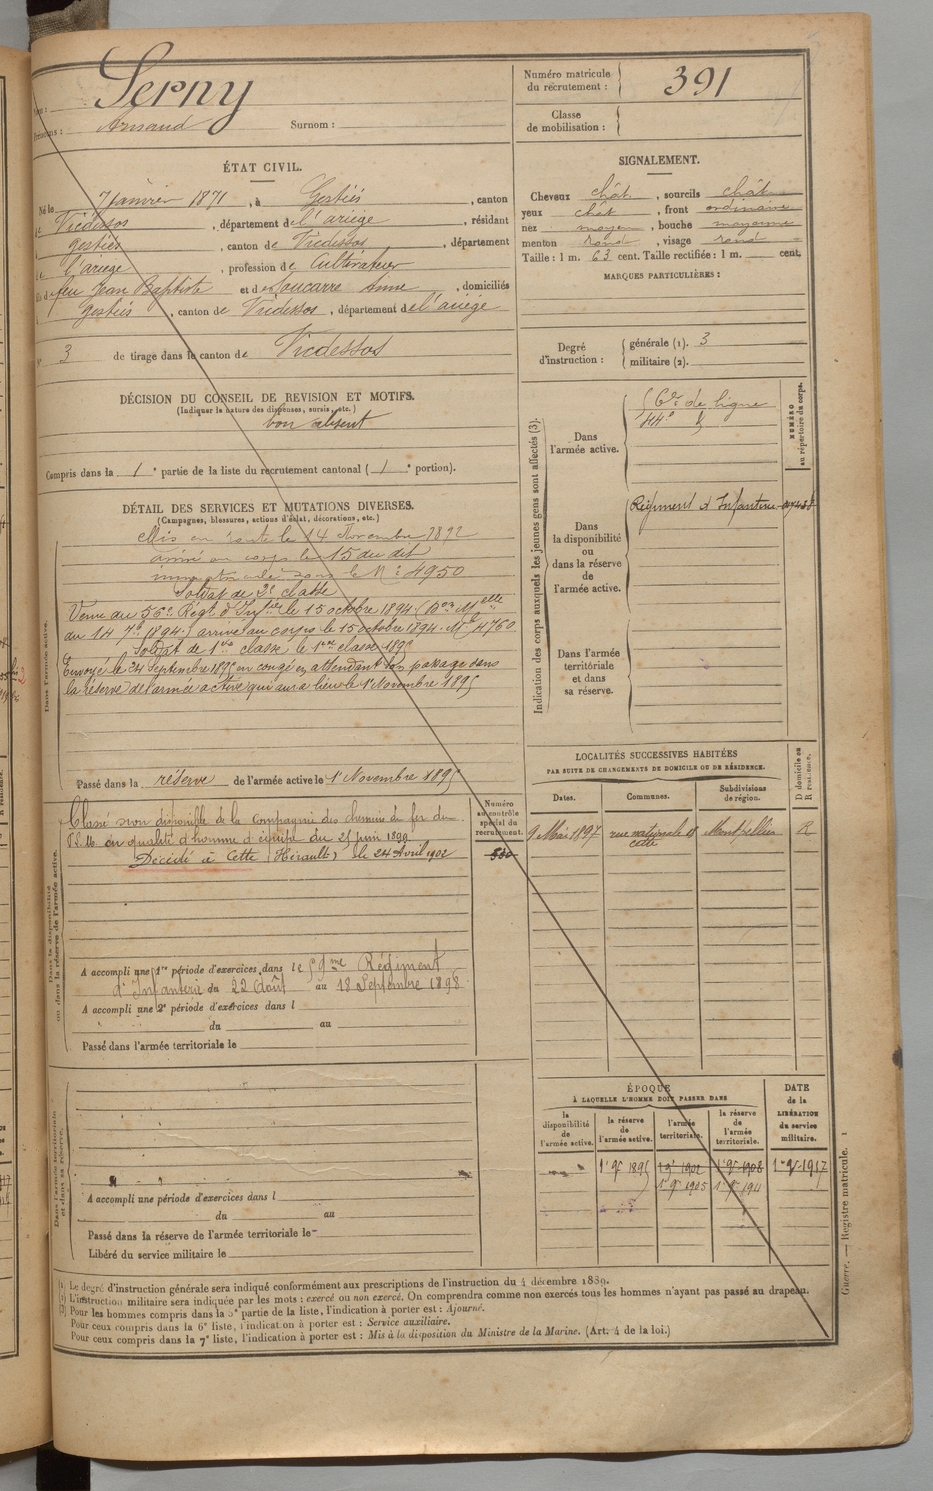 Nom : Serny
Prénoms : Arnaud Surnom :
Numéro matricule du recrutement : 391
Classe de mobilisation :
ÉTAT CIVIL.
Né le 7 Janvier 1871, à Gestiès, canton
de Vicdessos, département de l'ariège, résidant
à gestiès, canton de Vicdessos, département
de l'ariege, profession de Cultivateur
fils de feu Jean Baptiste et de Anne, domiciliés
à gestiès, canton de Vicdessos, département de l'ariège
N° 3 de tirage dans le canton de Vicdessos
SIGNALEMENT.
Cheveux chât., sourcils chât.
yeux chât, front ordinaire
nez moyen, bouche moyenne
menton rond, visage rond
Taille : 1 m. 63 cent. Taille rectifiée : 1 m. cent.
MARQUES PARTICULIÈRES :
Degré d'instruction : générale (1). 3
militaire (2).
DÉCISION DU CONSEIL DE REVISION ET MOTIFS.
(Indiquer la nature des dispenses, sursis, etc.)
bon absent
Compris dans la 1e partie de la liste du recrutement cantonal (1e portion).
DÉTAIL DES SERVICES ET MUTATIONS DIVERSES.
(Campagnes, blessures, actions d'éclat, décorations, etc.)
Dans l'armée active.
Mis en route le 14 Novembre 1892
arrivé au corps le 15 du dit
immatriculé sous le N° 4950
Soldat de 2e classe
Venu du 56e Regt d'Inftie le 15 octobre 1894 (Don Melle
du 14 7bre 1894) arrivé au corps le 15 octobre 1894. Mle 4760
Soldat de 1re classe le 1895
Envoyé le 24 Septembre 1895 en congé en attendant son passage dans
la réserve de l'armée active qui aura lieu le 1er Novembre 1895
Passé dans la réserve de l'armée active le 1er Novembre 1895
Indication des corps auxquels les jeunes gens sont affectés (3).
NUMÉRO au répertoire du corps.
Dans l'armée active.
de ligne
Dans la disponibilité ou dans la réserve de l'armée active.
Régiment d'Infanterie
Dans l'armée territoriale et dans sa réserve.
Dans la disponibilité ou dans la réserve de l'armée active.
Numéro au contrôle spécial du recrutement.
Classé non disponible de la Compagnie des chemins de fer du
P.L.M. en qualité d'homme d'équipe du 25 juin 1899
Décédé à Cette (Hérault) le 24 Avril 1902
A accompli une 1re période d'exercices dans le 59me Régiment
d'Infanterie du 22 Août au 18 Septembre 1898
A accompli une 2e période d'exercices dans l
du au
Passé dans l'armée territoriale le
LOCALITÉS SUCCESSIVES HABITÉES
PAR SUITE DE CHANGEMENTS DE DOMICILE OU DE RÉSIDENCE.
Dates. Communes. Subdivisions de région. D domicile ou R résidence.
9 Mai 1897 rue nationale 18 Cette Montpellier R
ÉPOQUE
À LAQUELLE L'HOMME DOIT PASSER DANS
DATE de la LIBÉRATION du service militaire.
la disponibilité de l'armée active. la réserve de l'armée active. l'armée territoriale. la réserve de l'armée territoriale.
1er 9bre 1895 1902 1er 9bre 1908 1er 9bre 1917
1er 9bre 1905 1er 9bre 1911
Dans l'armée territoriale et dans sa réserve.
A accompli une période d'exercices dans l
du au
Passé dans la réserve de l'armée territoriale le
Libéré du service militaire le
(1) Le degré d'instruction générale sera indiqué conformément aux prescriptions de l'instruction du 4 décembre 1889.
(2) L'instruction militaire sera indiquée par les mots : exercé ou non exercé. On comprendra comme non exercés tous les hommes n'ayant pas passé au drapeau.
(3) Pour les hommes compris dans la 5e partie de la liste, l'indication à porter est : Ajourné.
Pour ceux compris dans la 6e liste, l'indication à porter est : Service auxiliaire.
Pour ceux compris dans la 7e liste, l'indication à porter est : Mis à la disposition du Ministre de la Marine. (Art. 4 de la loi.)
Guerre. — Registre matricule. 1